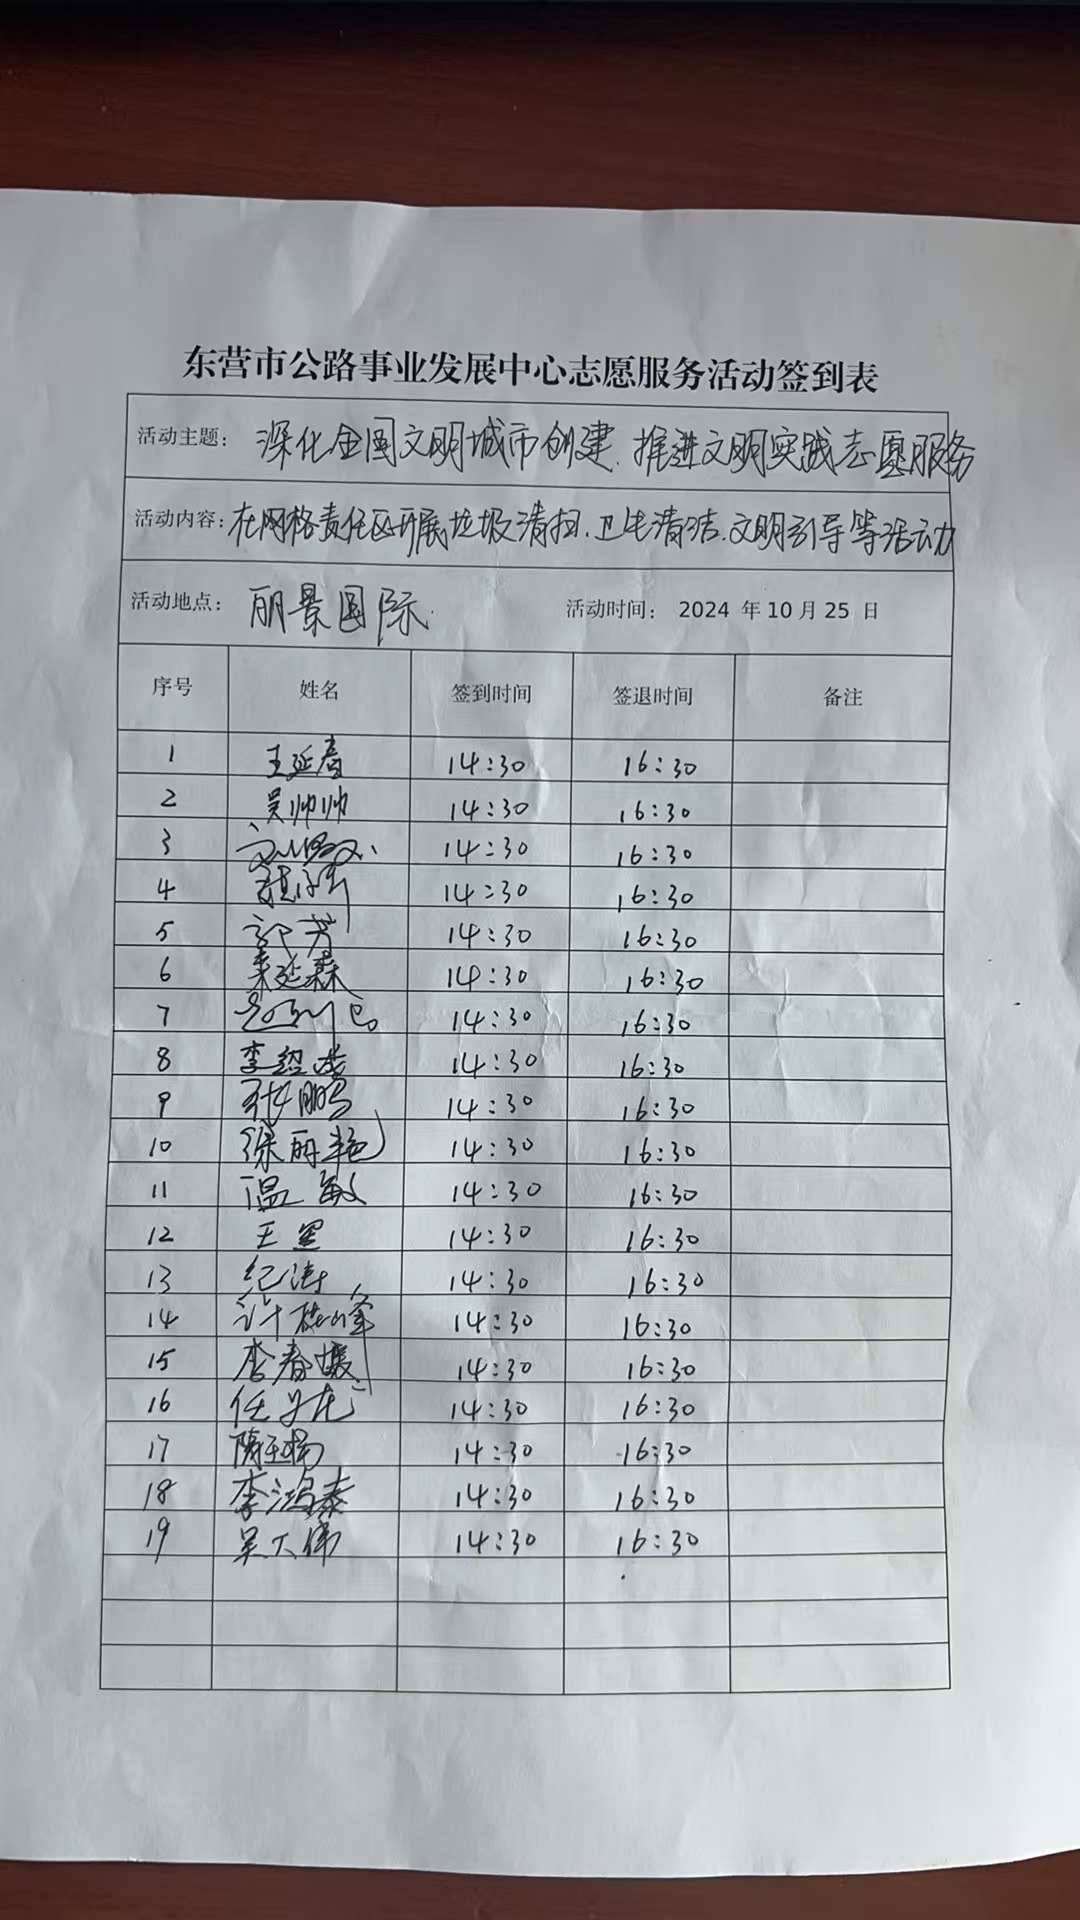 东营市公路事业发展中心志愿服务活动签到表
活动主题: 深化全国文明城市创建、推进文明实践志愿服务
活动内容: 在网格责任区开展垃圾清扫、卫生清洁、文明引导等活动
活动地点: 丽景国际 活动时间: 2024 年 10 月 25 日
序号 姓名 签到时间 签退时间 备注
1 王延 14:30 16:30
2 吴帅帅 14:30 16:30
3 14:30 16:30
4 14:30 16:30
5 郭芳 14:30 16:30
6 延森 14:30 16:30
7 14:30 16:30
8 李 14:30 16:30
9 张鹏 14:30 16:30
10 徐丽艳 14:30 16:30
11 温敏 14:30 16:30
12 王星 14:30 16:30
13 纪涛 14:30 16:30
14 许峰 14:30 16:30
15 李春媛 14:30 16:30
16 任 14:30 16:30
17 14:30 16:30
18 李鸿泰 14:30 16:30
19 吴大伟 14:30 16:30